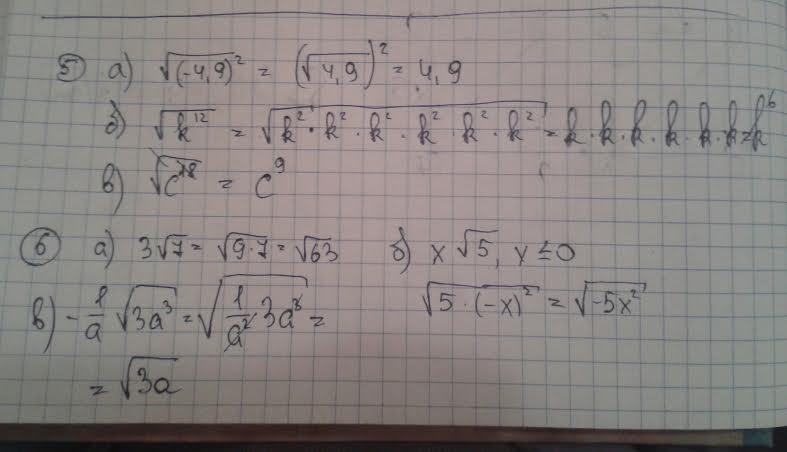 ⑤ а) √(-4,9)² = (√4,9)² = 4,9
б) √k¹² = √k²·k²·k²·k²·k²·k² = k·k·k·k·k·k=k⁶
в) √c¹⁸ = c⁹
⑥ а) 3√7 = √9·7 = √63 б) x√5, x≤0
√5·(-x)² = √-5x²
в) -1/a √3a³ = √1/a² 3a³ =
= √3a